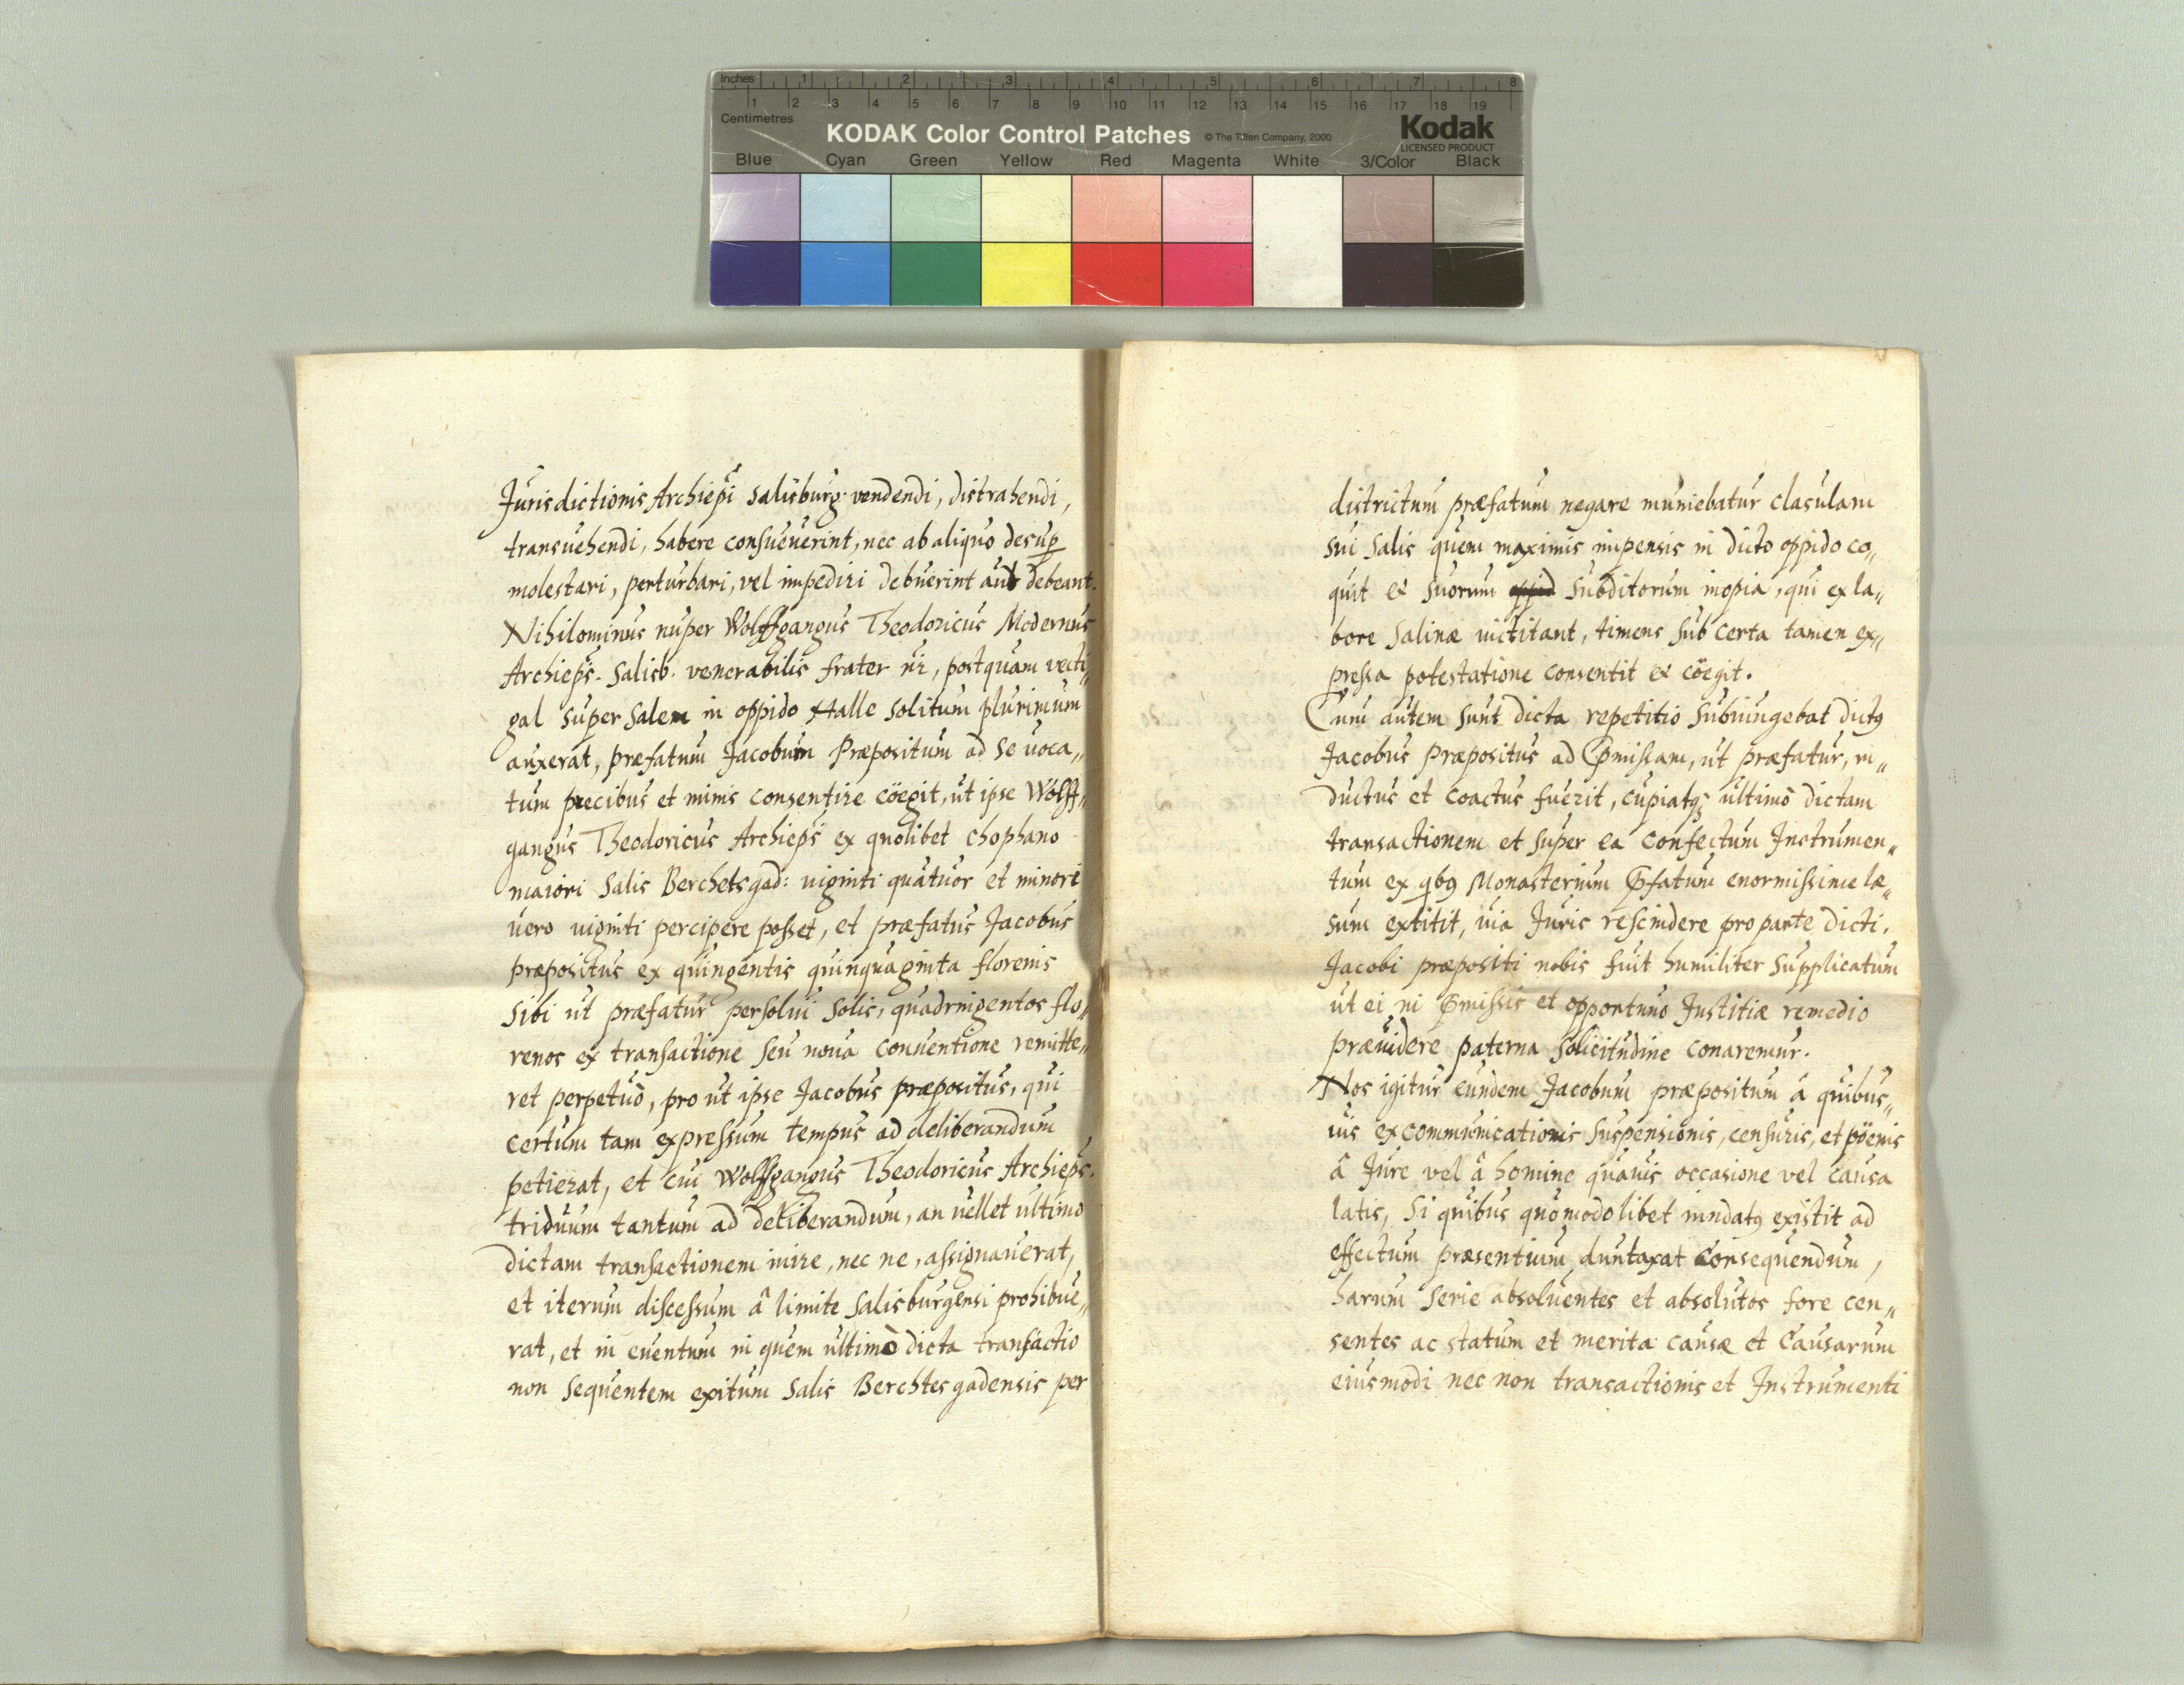 Inches 1 2 3 4 5 6 7 8
1 2 3 4 5 6 7 8 9 10 11 12 13 14 15 16 17 18 19
Centimetres
KODAK Color Control Patches © The Tiffen Company, 2000 Kodak
LICENSED PRODUCT
Blue Cyan Green Yellow Red Magenta White 3/Color Black
Jurisdictionis Archiepi Salisburg. vendendi, distrahendi,
transuehendi, habere consueuerint, nec ab aliquo desup
molestari, perturbari, vel impediri debuerint aut debeant.
Nihilominus nuper Wolffgangus Theodoricus Modernus
Archieps. Salisb. venerabilis frater nr, postquam vecti„
gal super salem in oppido Halle solitum plurimum
auxerat, præfatum Jacobum Præpositum ad se uoca„
tum precibus et minis consentire cöegit, ut ipse Wolff„
gangus Theodoricus Archieps ex quolibet chophano
maiori Salis Berchetsgad: uiginti quatuor et minori
uero uiginti percipere posset, et præfatus Jacobus
præpositus ex quingentis quinquaginta florenis
sibi ut præfatur persolui solis, quadringentos flo„
renos ex transactione seu noua conuentione remitte„
ret perpetuò, pro ut ipse Jacobus præpositus, qui
certum tam expressum tempus ad deliberandum
petierat, et cui Wolffgangus Theodoricus Archieps.
triduum tantum ad deliberandum, an uellet ultimo
dictam transactionem inire, nec ne, assignauerat,
et iterum discessum â limite Salisburgensi prohibue„
rat, et in euentum in quem ultimò dicta transactio
non sequentem exitum Salis Berchtesgadensis per
districtum præfatum negare muniebatur clasulam
sui Salis quem maximis impensis in dicto oppido co„
quit et suorum oppid subditorum inopia, qui ex la„
bore Salinæ uictitant, timens sub certa tamen ex„
pressa potestatione consentit et cöegit.
Cum autem sunt dicta repetitio subiungebat dictꝯ
Jacobus Præpositus ad p̄missam, ut præfatur, in„
ductus et coactus fuerit, cupiatqꝫ ultimò dictam
transactionem et super ea confectum Instrumen„
tum ex qbꝯ Monasterium p̄fatum enormissime læ„
sum extitit, uia Juris rescindere pro parte dicti.
Jacobi præpositi nobis fuit humiliter supplicatum
ut ei in p̄missis et opportuno Justitiæ remedio
præuidere paterna solicitudine conaremur.
Nos igitur eundem Jacobum præpositum â quibus„
uis excommunicationis suspensionis, censuris, et pöenis
â Jure vel â homine quauis occasione vel causa
latis, si quibus quomodolibet inndatꝯ existit ad
effectum præsentium duntaxat consequendum,
harum serie absoluentes et absolutos fore cen„
sentes ac statum et merita causæ et Causarum
eiusmodi nec non transactionis et Instrumenti